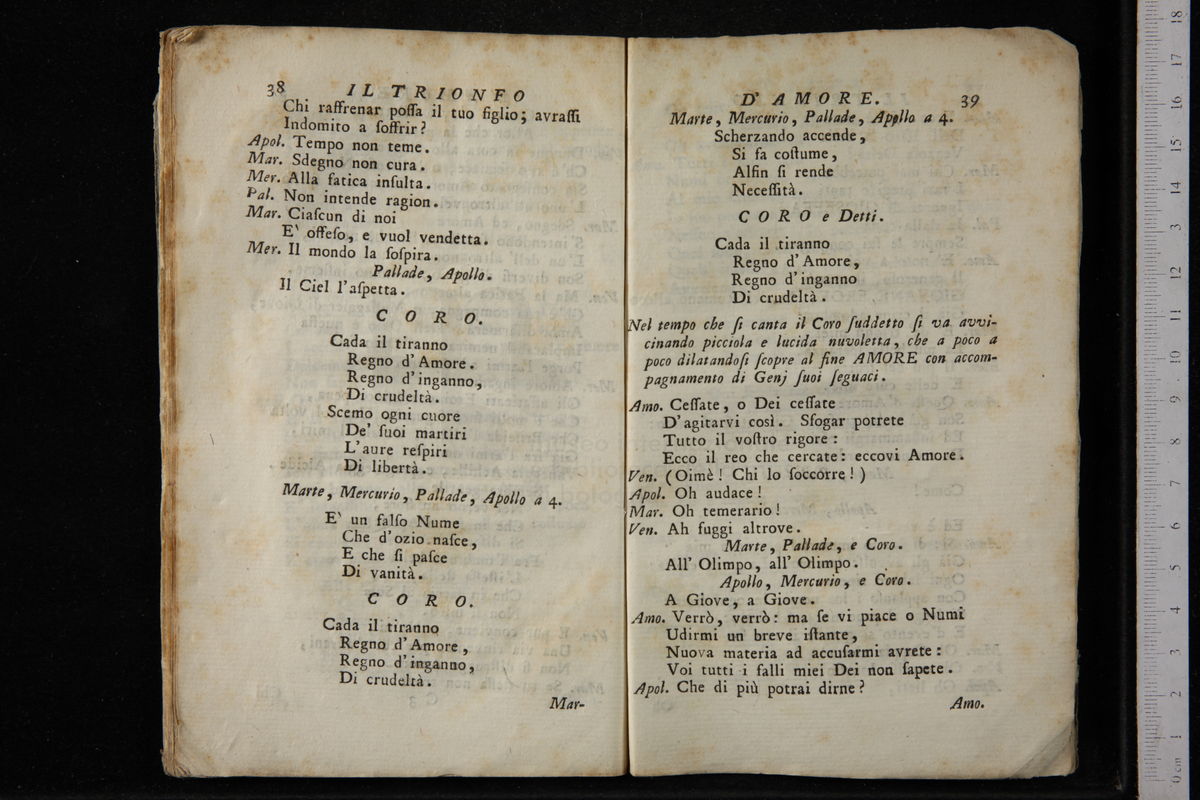 38 IL TRIONFO
Chi raffrenar poſſa il tuo figlio; avraſſi
Indomito a ſoffrir?
Apol. Tempo non teme.
Mar. Sdegno non cura.
Mer. Alla fatica inſulta.
Pal. Non intende ragion.
Mar. Ciaſcun di noi
E' offeſo, e vuol vendetta.
Mer. Il mondo la ſoſpira.
Pallade, Apollo.
Il Ciel l'aſpetta.
CORO.
Cada il tiranno
Regno d'Amore.
Regno d'inganno,
Di crudeltà.
Scemo ogni cuore
De' ſuoi martiri
L'aure reſpiri
Di libertà.
Marte, Mercurio, Pallade, Apollo a 4.
E' un falſo Nume
Che d'ozio naſce,
E che ſi paſce
Di vanità.
CORO.
Cada il tiranno
Regno d'Amore,
Regno d'inganno,
Di crudeltà.
Mar-
D'AMORE. 39
Marte, Mercurio, Pallade, Apollo a 4.
Scherzando accende,
Si fa coſtume,
Alfin ſi rende
Neceſſità.
CORO e Detti.
Cada il tiranno
Regno d'Amore,
Regno d'inganno
Di crudeltà.
Nel tempo che ſi canta il Coro ſuddetto ſi va avvi-
cinando picciola e lucida nuvoletta, che a poco a
poco dilatandoſi ſcopre al fine AMORE con accom-
pagnamento di Genj ſuoi ſeguaci.
Amo. Ceſſate, o Dei ceſſate
D'agitarvi così. Sfogar potrete
Tutto il voſtro rigore:
Ecco il reo che cercate: eccovi Amore.
Ven. (Oimè! Chi lo ſoccorre!)
Apol. Oh audace!
Mar. Oh temerario!
Ven. Ah fuggi altrove.
Marte, Pallade, e Coro.
All' Olimpo, all' Olimpo.
Apollo, Mercurio, e Coro.
A Giove, a Giove.
Amo. Verrò, verrò: ma ſe vi piace o Numi
Udirmi un breve iſtante,
Nuova materia ad accuſarmi avrete:
Voi tutti i falli miei Dei non ſapete.
Apol. Che di più potrai dirne?
Amo.
0 cm 1 2 3 4 5 6 7 8 9 10 11 12 3 14 15 16 17 18